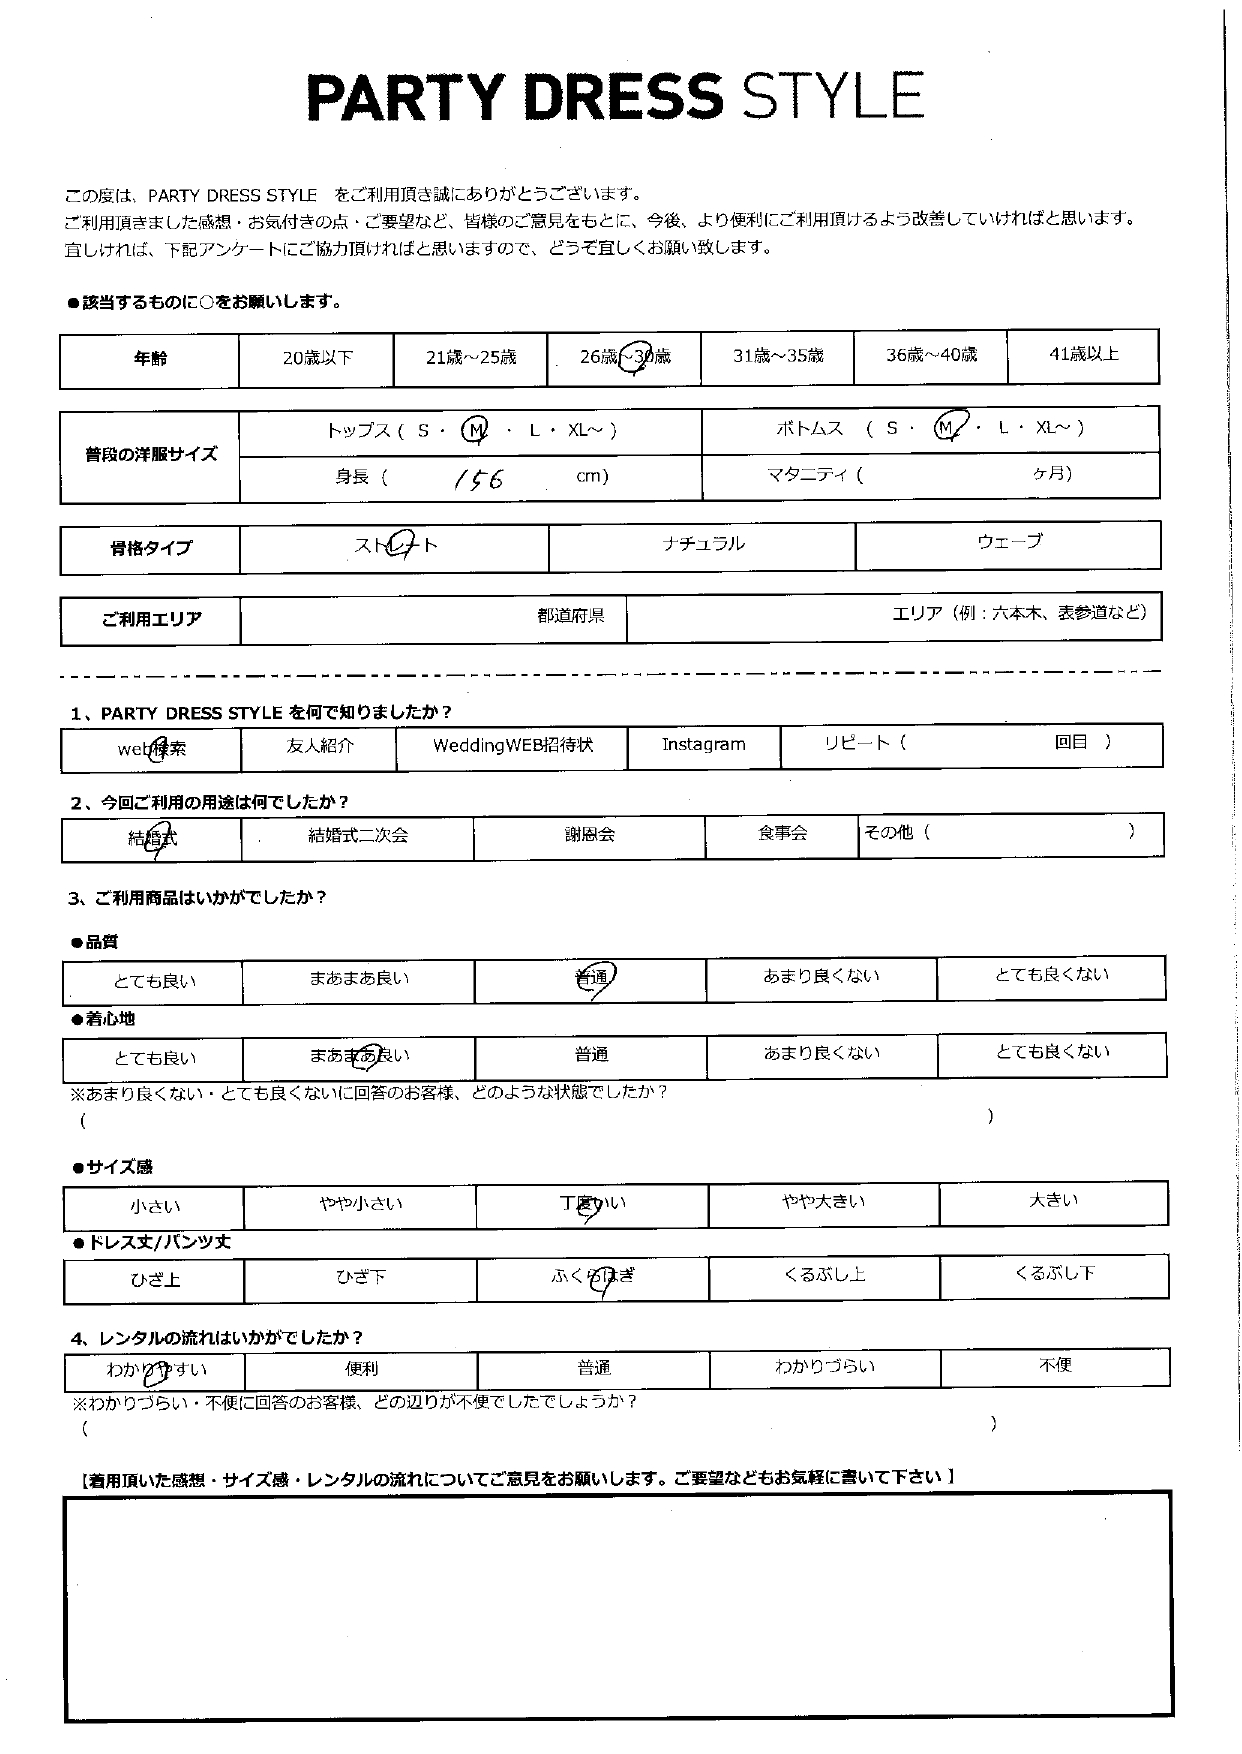 PARTY DRESS STYLE
この度は、PARTY DRESS STYLE をご利用頂き誠にありがとうございます。
ご利用頂きました感想・お気付きの点・ご要望など、皆様のご意見をもとに、今後、より便利にご利用頂けるよう改善していければと思います。
宜しければ、下記アンケートにご協力頂ければと思いますので、どうぞ宜しくお願い致します。
●該当するものに○をお願いします。
年齢 20歳以下 21歳～25歳 26歳～30歳 31歳～35歳 36歳～40歳 41歳以上
普段の洋服サイズ トップス ( S ・ M ・ L ・ XL～ ) ボトムス ( S ・ M ・ L ・ XL～ )
身長 ( 156 cm) マタニティ ( ヶ月)
骨格タイプ ストレート ナチュラル ウェーブ
ご利用エリア 都道府県 エリア（例：六本木、表参道など）
1、PARTY DRESS STYLE を何で知りましたか？
web検索 友人紹介 WeddingWEB招待状 Instagram リピート（ 回目 ）
2、今回ご利用の用途は何でしたか？
結婚式 結婚式二次会 謝恩会 食事会 その他（ ）
3、ご利用商品はいかがでしたか？
●品質
とても良い まあまあ良い 普通 あまり良くない とても良くない
●着心地
とても良い まあまあ良い 普通 あまり良くない とても良くない
※あまり良くない・とても良くないに回答のお客様、どのような状態でしたか？
( )
●サイズ感
小さい やや小さい 丁度いい やや大きい 大きい
●ドレス丈/パンツ丈
ひざ上 ひざ下 ふくらはぎ くるぶし上 くるぶし下
4、レンタルの流れはいかがでしたか？
わかりやすい 便利 普通 わかりづらい 不便
※わかりづらい・不便に回答のお客様、どの辺りが不便でしたでしょうか？
( )
【着用頂いた感想・サイズ感・レンタルの流れについてご意見をお願いします。ご要望などもお気軽に書いて下さい 】